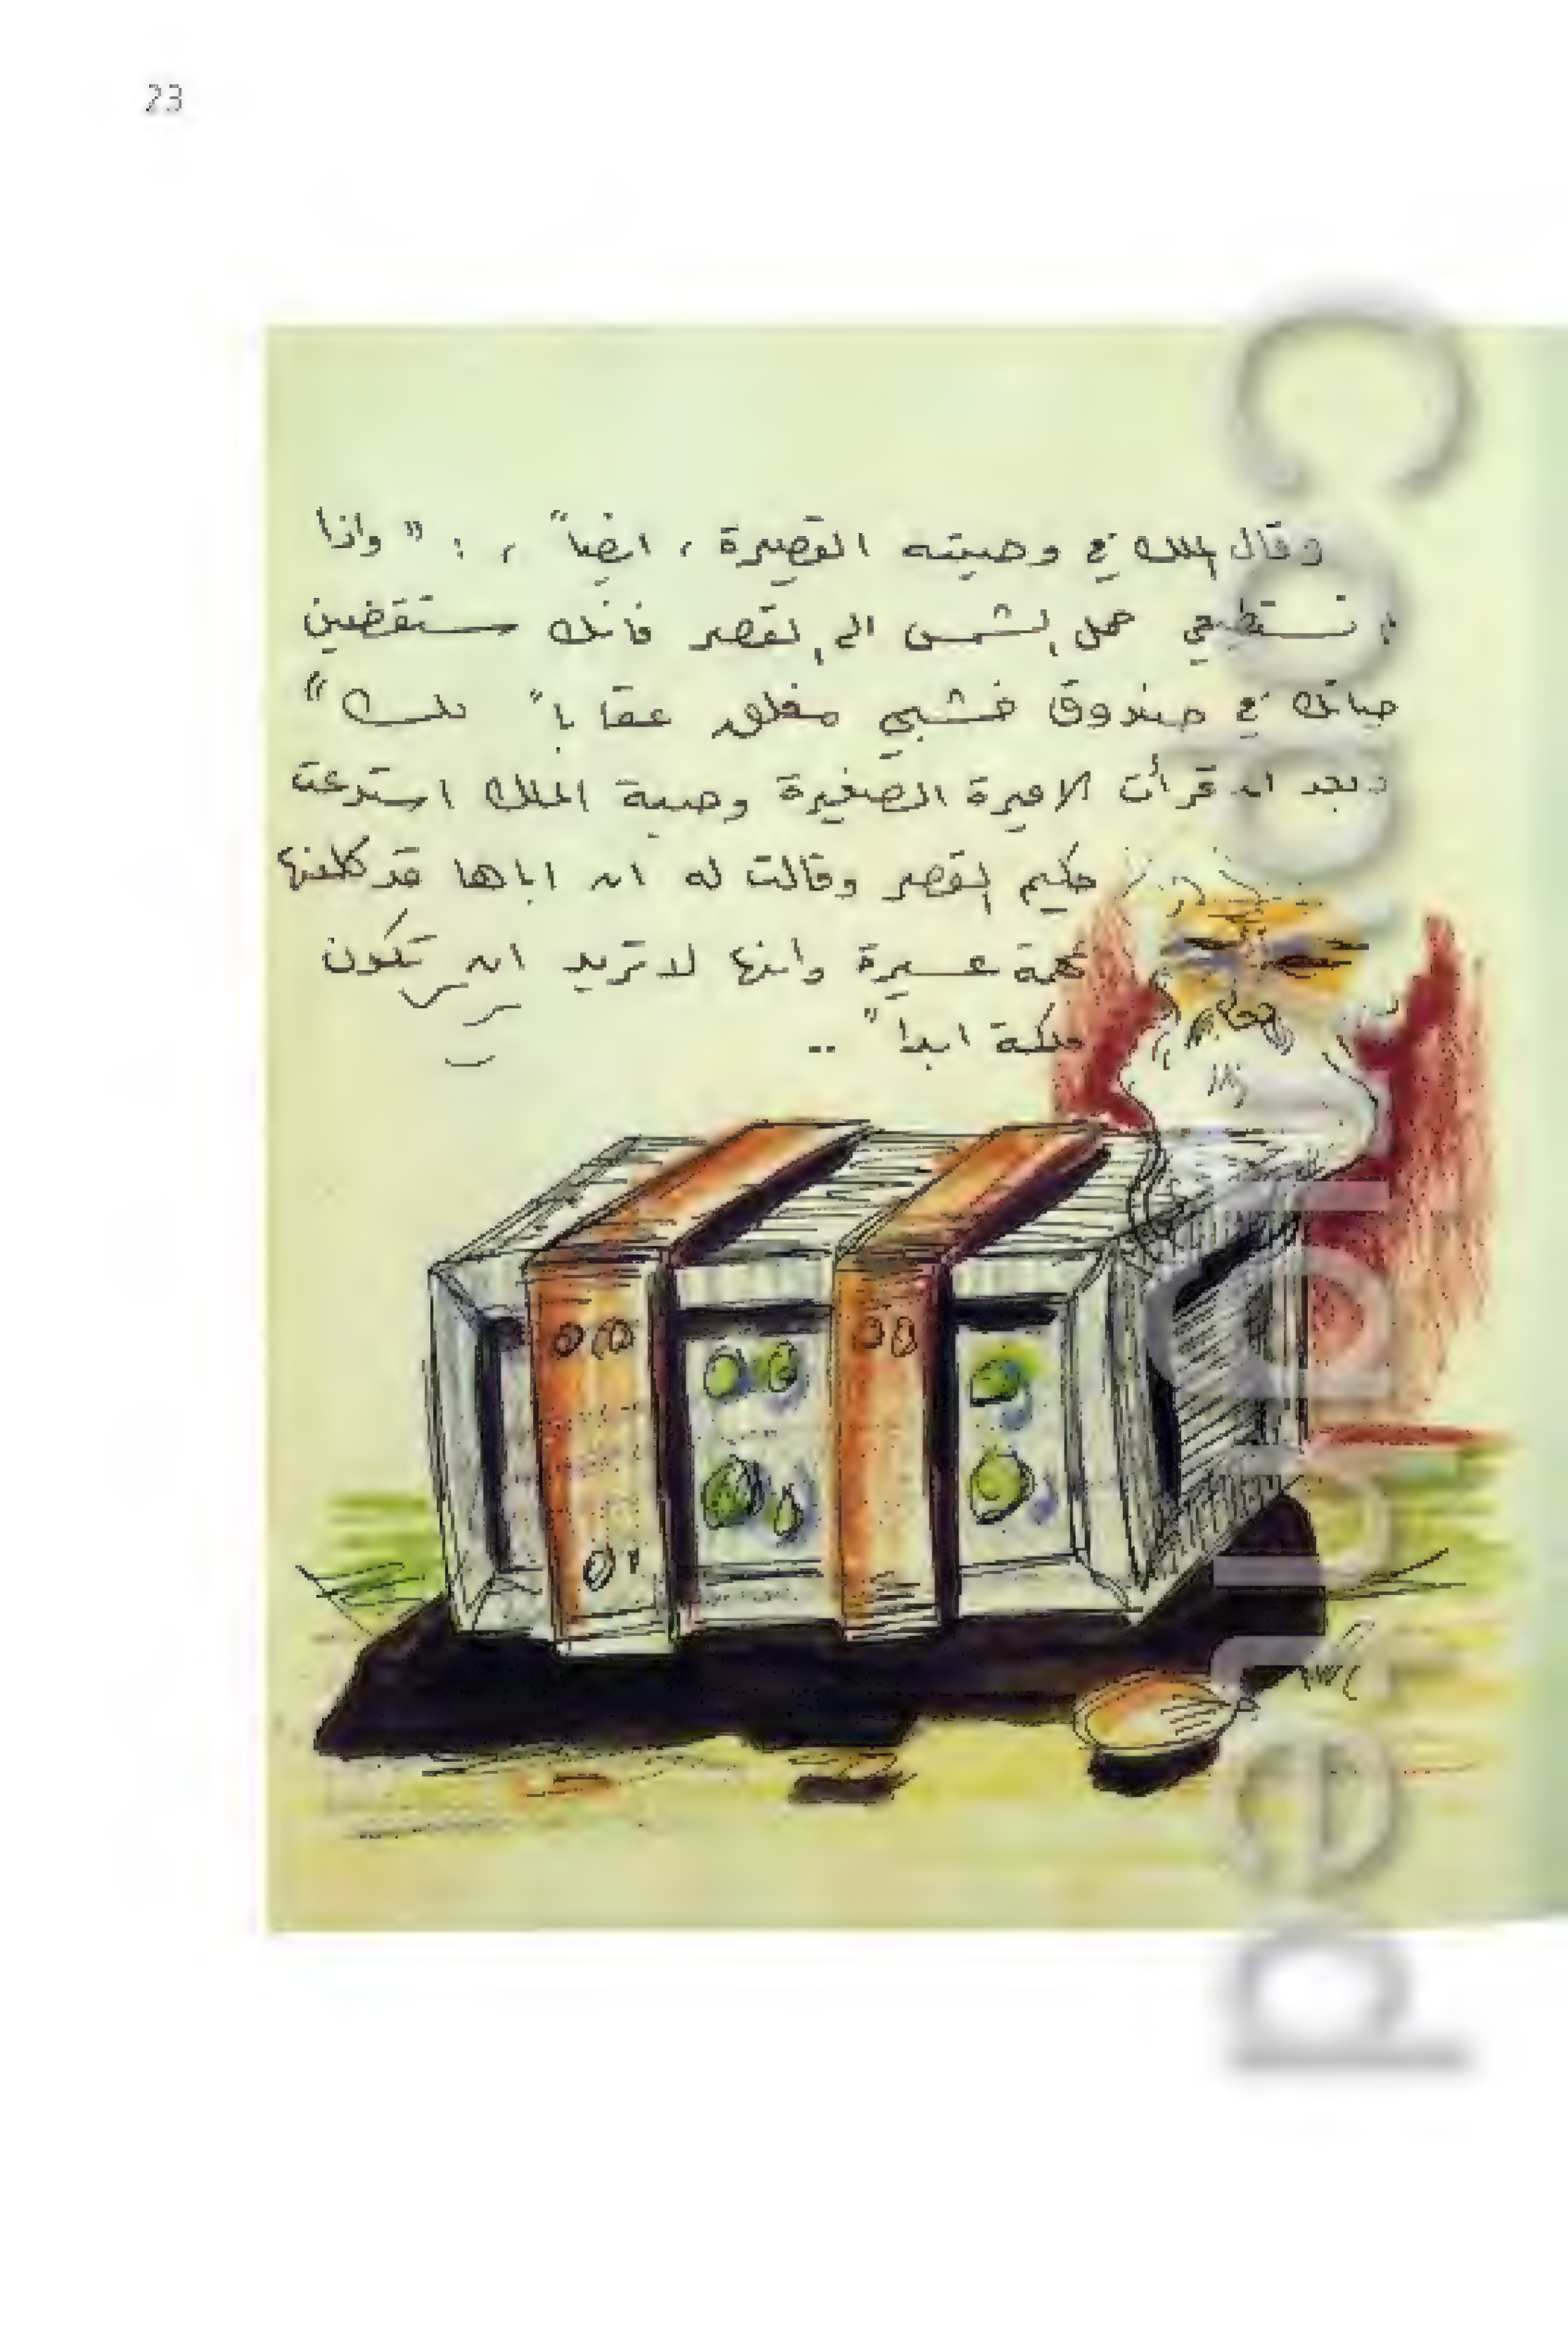 23
وقال الملك في وصيته القصيرة ، ايضاً ، : " واذا
لم تستطيعي حمل الشمس الى القصر فانك ستقضين
حياتك في صندوق خشبي مغلق عقاباً لك "
وبعد ان قرأت الاميرة الصغيرة وصية الملك استدعت
حكيم القصر وقالت له ان اباها قد كلفها
بمهمة عسيرة وانها لا تريد ان تكون
ملكة ابداً ..